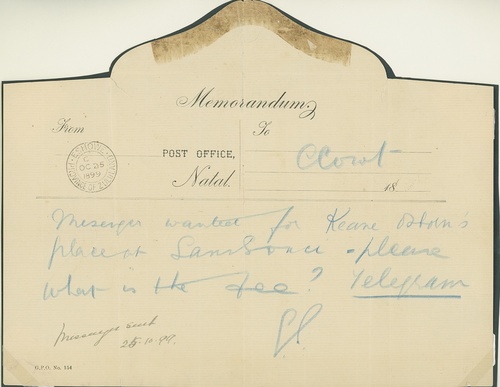 Memorandum
From To
ESHOWE
OC 25
1899
POST OFFICE,
Natal. 18
Messenger wanted for Keane Osborn's
place at Sans Souci - please
what is the fee? Telegram
Message sent
25.10.99.
G.P.O. No. 154